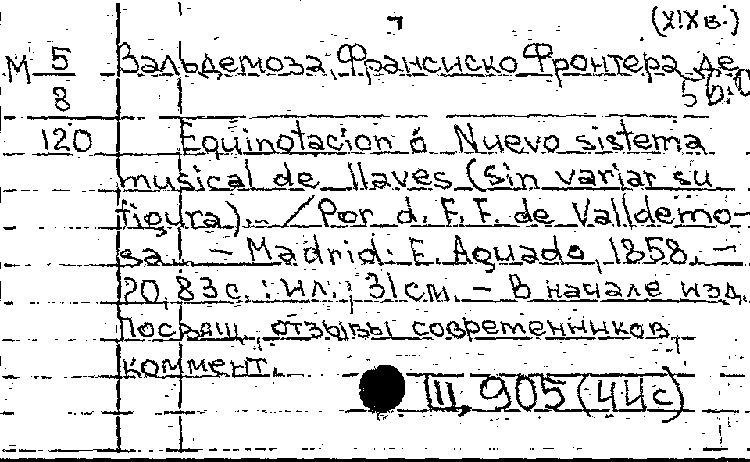 (XIX в.)
М 5/8 Вальдемоза, Франсиско Фронтера де
120 Equinotacion ó Nuevo sistema
musical de llaves (sin variar su
figura)... / Por d. F. F. de Valldemo-
sa... - Madrid: E. Aguado, 1858. -
20, 83 с. : ил. ; 31 см. - В начале изд.
посвящ., отзывы современников,
коммент.
III, 905 (44с)